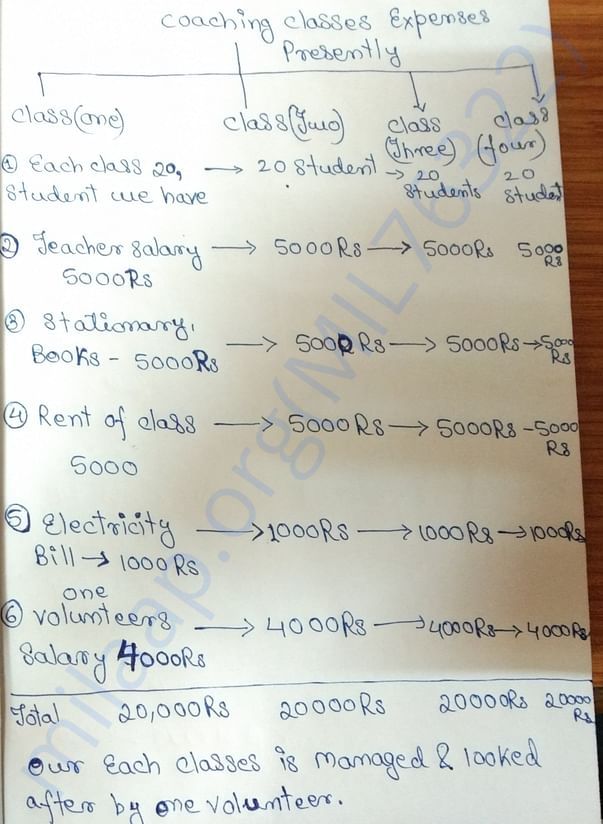 Coaching Classes Expenses
Presently
class(one) class(Two) class (Three) class (four)
① Each class 20, → 20 Student → 20 Students 20 Student
student we have
② Teacher salary → 5000Rs → 5000Rs 5000 Rs
5000Rs
③ Stationary,
Books - 5000Rs → 5000Rs → 5000Rs → 5000 Rs
④ Rent of class → 5000Rs → 5000Rs - 5000 Rs
5000
⑤ Electricity → 1000Rs → 1000Rs → 1000Rs
Bill → 1000Rs
one
⑥ volunteers → 4000Rs → 4000Rs → 4000Rs
Salary 4000Rs
Total 20,000Rs 20000Rs 20000Rs 20000 Rs
Our Each classes is managed & looked
after by one volunteer.
milaap.org(MIL763322)